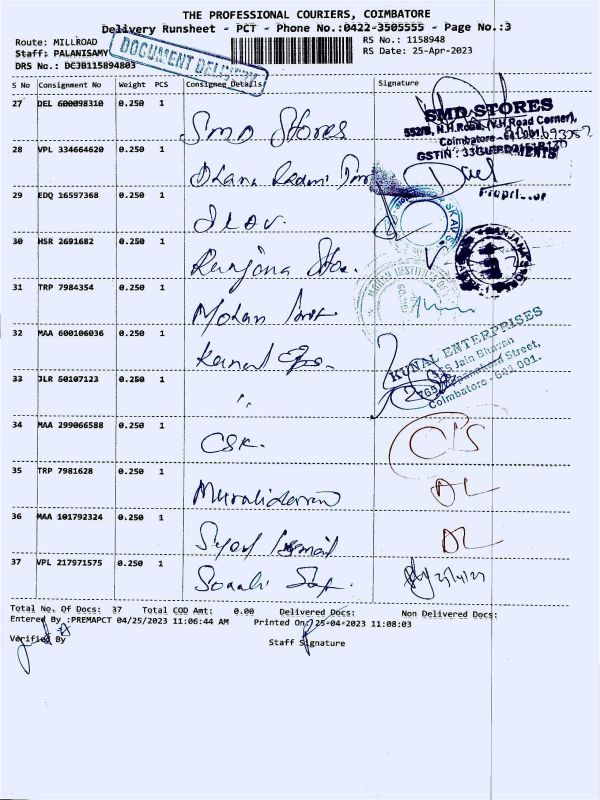 THE PROFESSIONAL COURIERS, COIMBATORE
Delivery Runsheet - PCT - Phone No.:0422-3505555 - Page No.:3
Route: MILLROAD
RS No.: 1158948
Staff: PALANISAMY
RS Date: 25-Apr-2023
DOCUMENT DELIVERY
DRS No.: DCJB115894803
S No Consignment No Weight PCS Consignee Details Signature
27 DEL 600098310 0.250 1 SMD Stores
SMD STORES
552/B, N.H.Road, (V.H.Road Corner),
Coimbatore
GSTIN :
28 VPL 334664620 0.250 1
29 EDQ 16597368 0.250 1
30 HSR 2691682 0.250 1 Ranjana
31 TRP 7984354 0.250 1 Mohan
32 MAA 600106036 0.250 1 Kunal
KUNAL ENTERPRISES
Jain Bhavan
Street,
Coimbatore - 641 001.
33 JLR 50107123 0.250 1 "
34 MAA 299066588 0.250 1 CSK.
35 TRP 7981628 0.250 1 Muralidharan
36 MAA 101792324 0.250 1 Syed Ismail
37 VPL 217971575 0.250 1 Sonali
Total No. Of Docs: 37 Total COD Amt: 0.00 Delivered Docs: Non Delivered Docs:
Entered By :PREMAPCT 04/25/2023 11:06:44 AM Printed On: 25-04-2023 11:08:03
Verified By Staff Signature